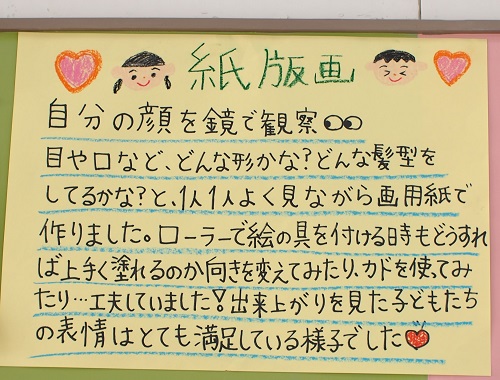 紙版画
自分の顔を鏡で観察
目や口など、どんな形かな?どんな髪型を
してるかな?と、1人1人よく見ながら画用紙で
作りました。ローラーで絵の具を付ける時もどうすれ
ば上手く塗れるのか向きを変えてみたり、カドを使ってみ
たり…工夫していました!出来上がりを見た子どもたち
の表情はとても満足している様子でした